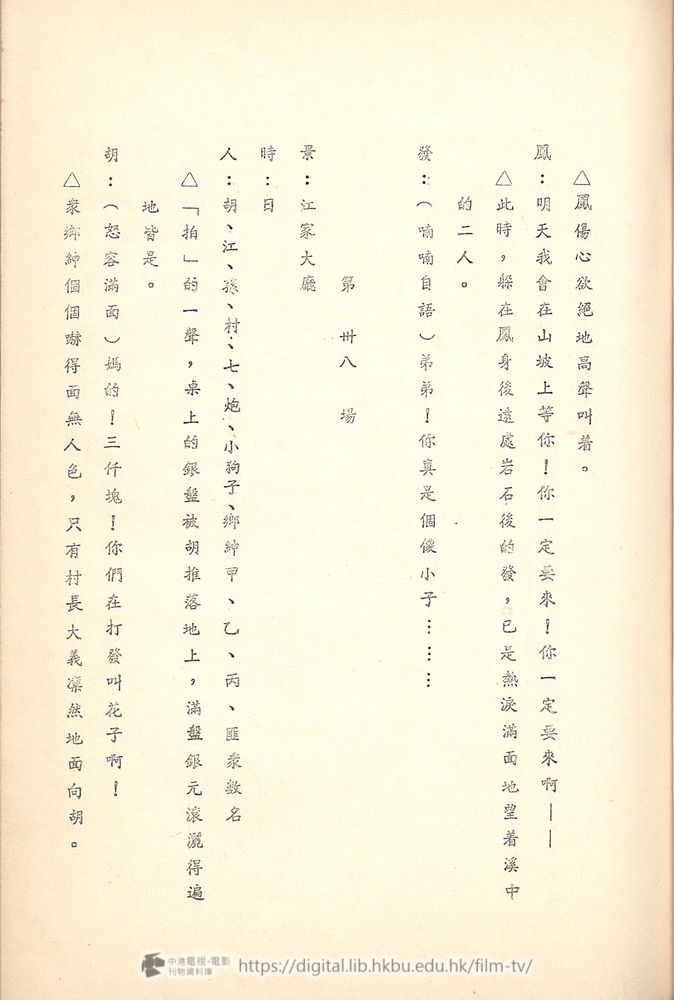 △鳳傷心欲絕地高聲叫着。
鳳：明天我會在山坡上等你！你一定要來！你一定要來啊——
△此時，躲在鳳身後遠處岩石後的發，已是熱淚滿面地望着溪中
的二人。
發：（喃喃自語）弟弟！你真是個傻小子………
第卅八場
景：江家大廳
時：日
人：胡、江、孫、村、七、炮、小狗子、鄉紳甲、乙、丙、匪衆數名
△「拍」的一聲，桌上的銀盤被胡推落地上，滿盤銀元滾灑得遍
地皆是。
胡：（怒容滿面）媽的！三仟塊！你們在打發叫花子啊！
△衆鄉紳個個嚇得面無人色，只有村長大義凜然地面向胡。
中港電視·電影
刊物資料庫
https://digital.lib.hkbu.edu.hk/film-tv/